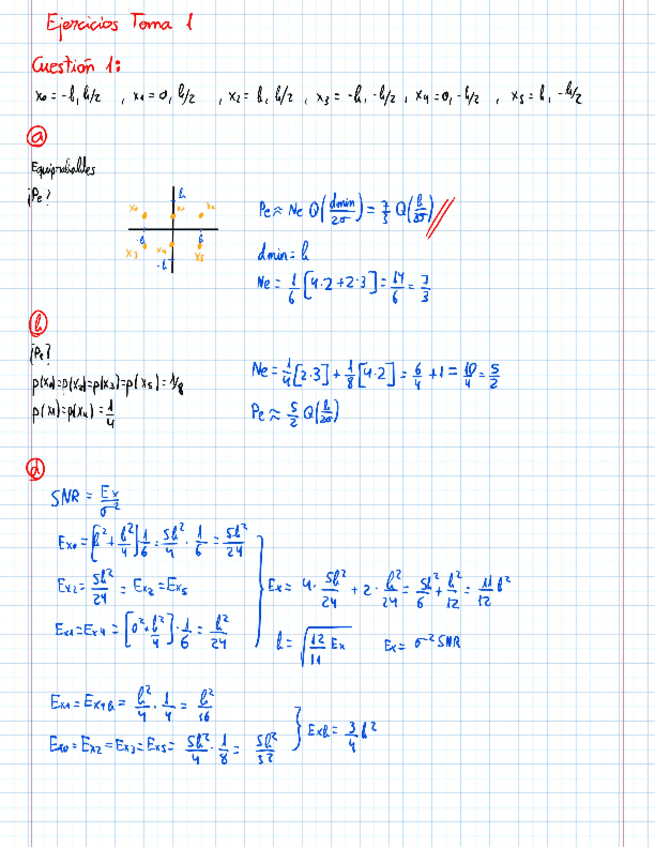 Ejercicios Tema 1
Cuestión 1:
x₀ = -h, h/2 , x₁ = 0, h/2 , x₂ = h, h/2 , x₃ = -h, -h/2 , x₄ = 0, -h/2 , x₅ = h, -h/2
a
Equiprobables
¿Pe?
h
x₀ x₁ x₂
-h h
x₃ x₄ x₅
-h
Pe ≈ Ne Q(dmin/2σ) = 7/3 Q(h/2σ) //
dmin = h
Ne = 1/6 [4·2 + 2·3] = 14/6 = 7/3
b
¿Pe?
p(x₀)=p(x₂)=p(x₃)=p(x₅) = 1/8
p(x₁)=p(x₄) = 1/4
Ne = 1/4 [2·3] + 1/8 [4·2] = 6/4 + 1 = 10/4 = 5/2
Pe ≈ 5/2 Q(h/2σ)
d
SNR = Ex/σ²
Ex₀ = [h² + h²/4] 1/6 = 5h²/4 · 1/6 = 5h²/24
Ex₂ = 5h²/24 = Ex₃ = Ex₅
Ex₁ = Ex₄ = [0² + h²/4] · 1/6 = h²/24
Ex = 4 · 5h²/24 + 2 · h²/24 = 5h²/6 + h²/12 = 11/12 h²
h = √(12/11 Ex) Ex = σ² SNR
Ex₁ = Ex₄b = h²/4 · 1/4 = h²/16
Ex₀ = Ex₂ = Ex₃ = Ex₅ = 5h²/4 · 1/8 = 5h²/32
Exb = 3/4 h²